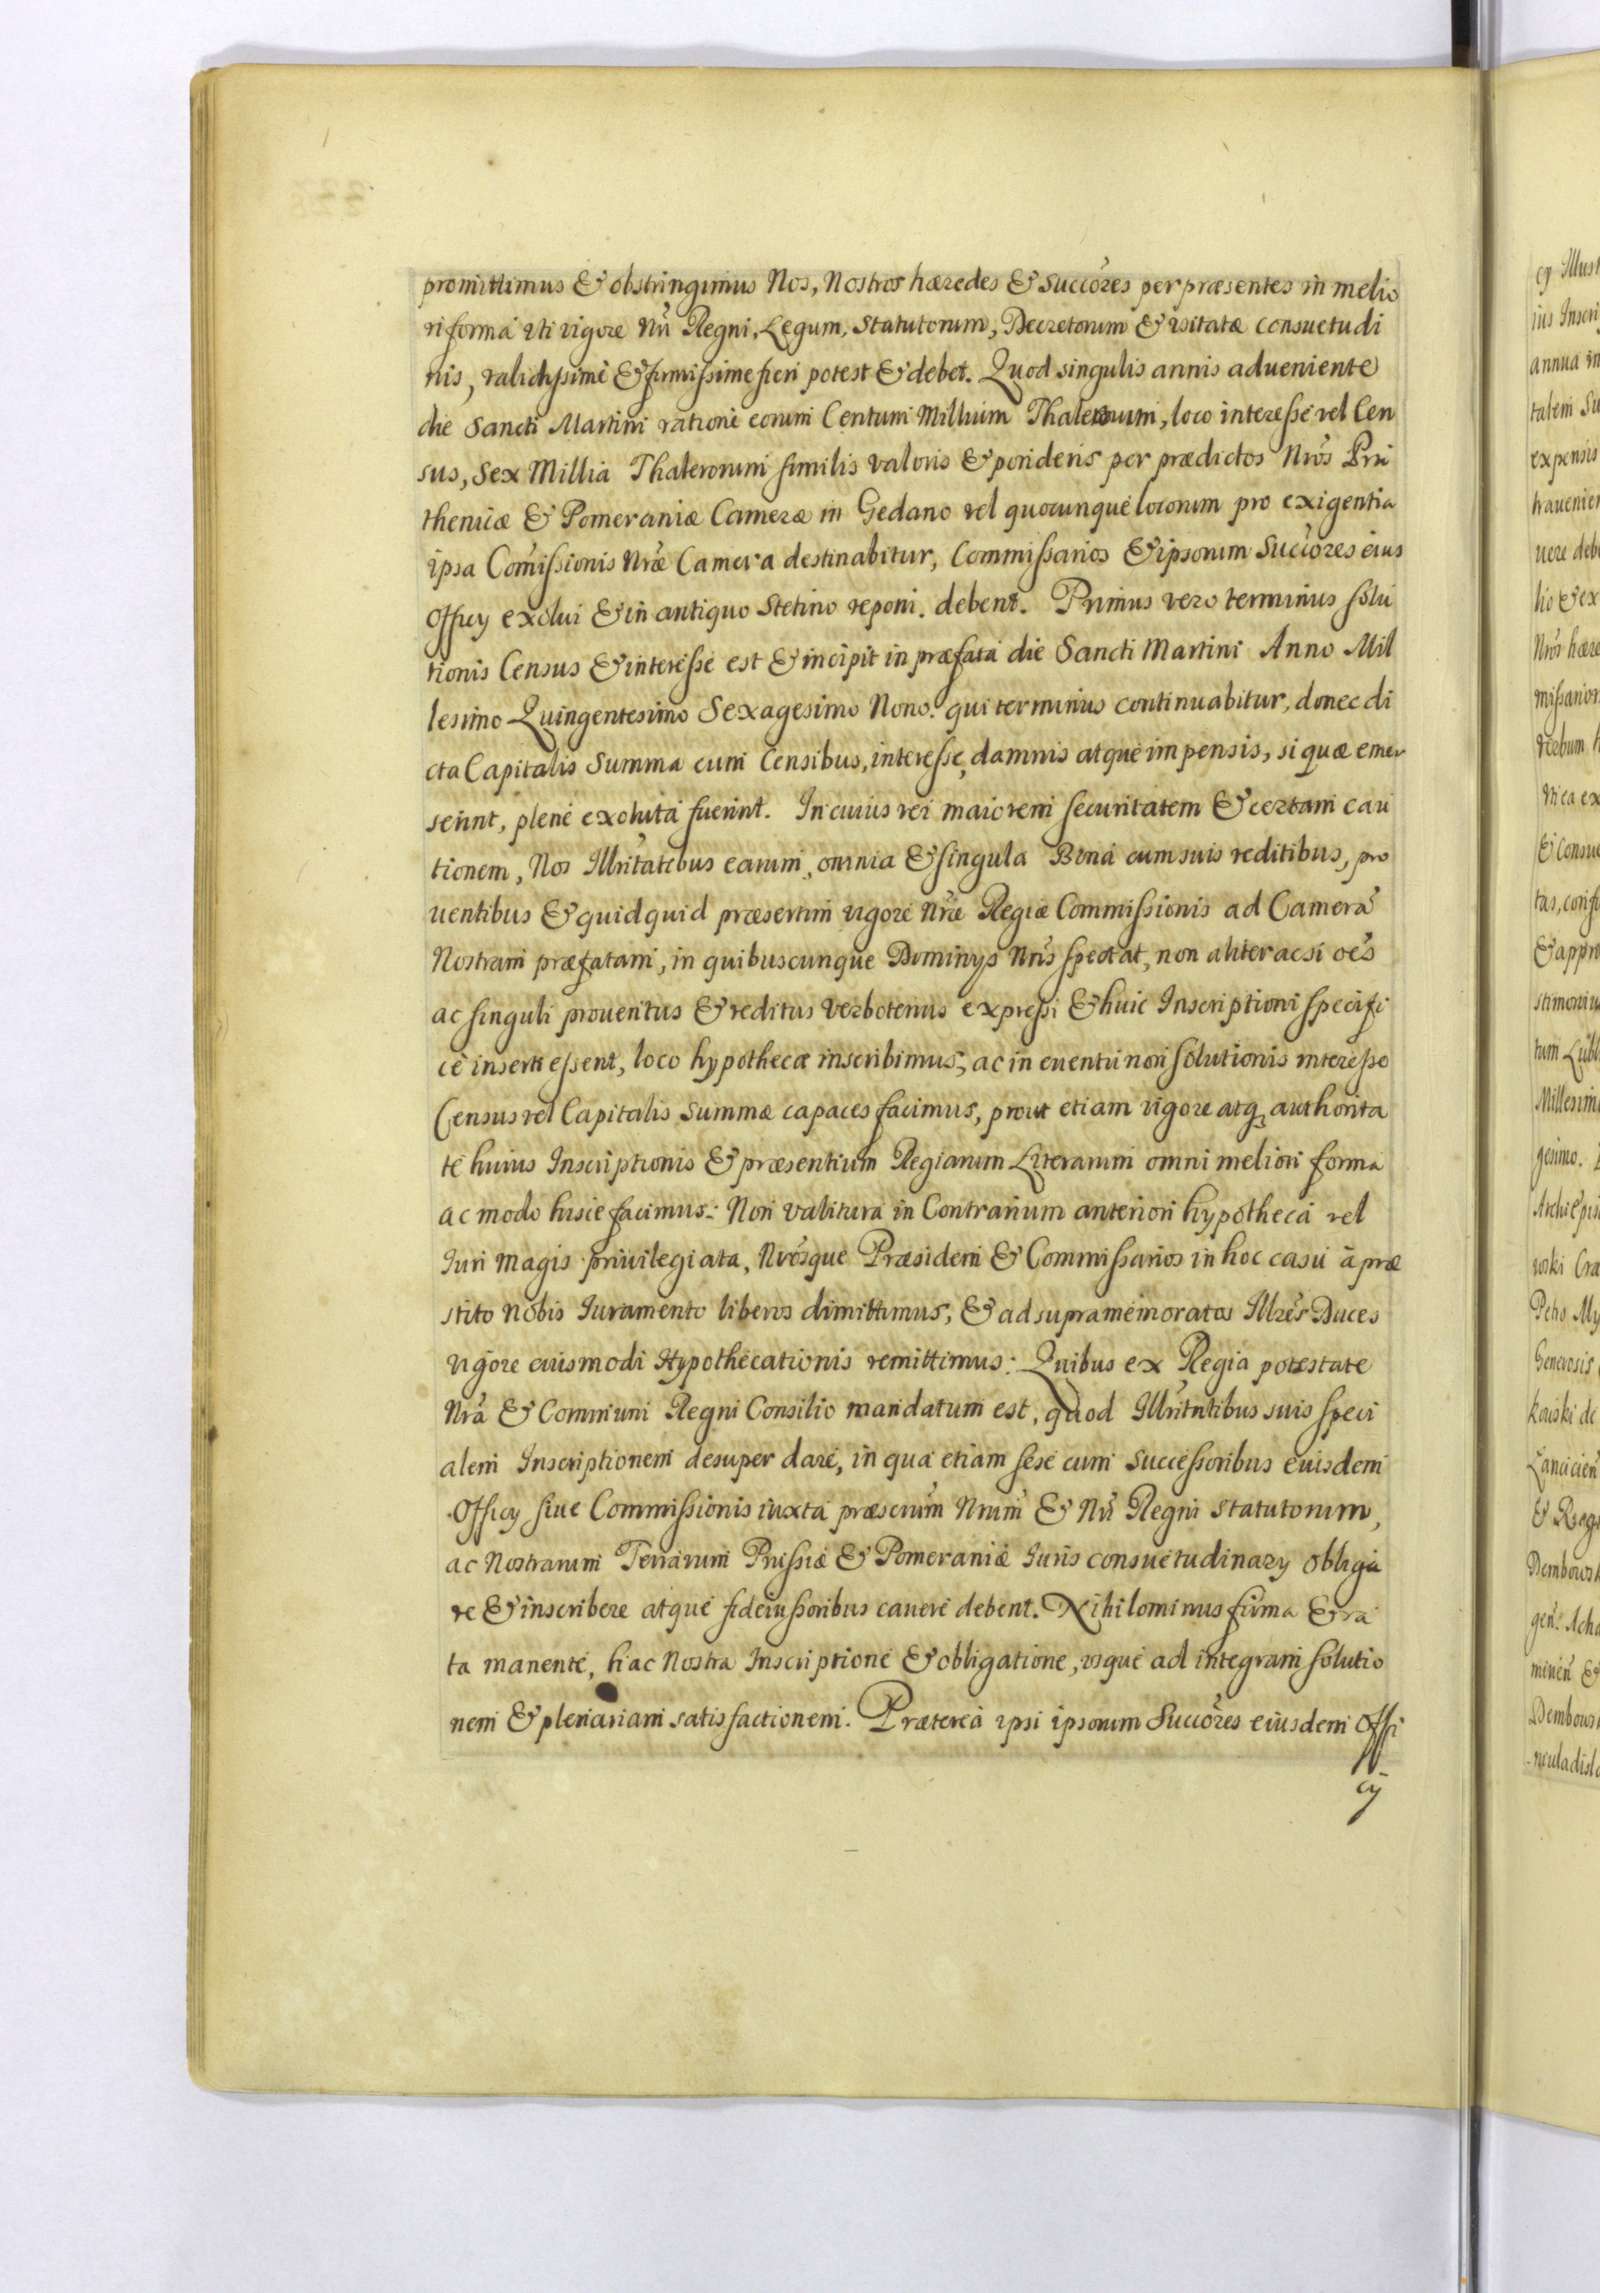 promittimus & obstringimus Nos, Nostros hæredes & Succõres per præsentes in melio
ri formá vti vigore Nři Regni, Legum, Statutorum, Decretorum & vsitatæ consuetudi
nis, validissimè & firmissime fieri potest & debet. Quod singulis annis adueniente
die Sancti Martini ratione eorum Centum Millium Thalerorum, loco interesse vel Cen
sus, Sex Millia Thalerorum similis valoris & ponderis per prædictos Nřos Pru
thenicæ & Pomeraniæ Cameræ in Gedano vel quocunque locorum pro exigentia
ipsa Com̃issionis Nřæ Camera destinabitur, Commissarios & ipsorum Succõres eius
Officy exolui & in antiquo Stetino reponi debent. Primus vero terminus solu
tionis Census & interesse est & incipit in præfata die Sancti Martini Anno Mil
lesimo Quingentesimo Sexagesimo Nono. qui terminus continuabitur, donec di
cta Capitalis Summa cum Censibus, interesse, damnis atque impensis, si quæ emer
serint, plenè exoluta fuerint. In cuius rei maiorem securitatem & certam cau
tionem, Nos Illritatibus earum, omnia & singula Bona cum suis reditibus, pro
uentibus & quidquid præsertim vigore Nřæ Regiæ Commissionis ad Camerã
Nostram præfatam, in quibuscunque Dominys Nřis spectat, non aliter acsi oẽs
ac singuli prouentus & reditus verbotenus expressi & huic Inscriptioni specifi
cè inserti essent, loco hypothecæ inscribimus, ac in euentũ non solutionis interesse
Census vel Capitalis Summæ capaces facimus, prout etiam vigore atq, authorita
te huius Inscriptionis & præsentium Regiarum Literarum omni meliori forma
ac modo hisce facimus: Non valitura in Contrarium anteriori hypothecá vel
Iuri magis priuilegiata, Nřosque Præsidem & Commissarios in hoc casu à præ
stito Nobis Iuramento liberos dimittimus, & ad supramemoratos Illřes Duces
vigore eiusmodi Hypothecationis remittimus: Quibus ex Regia potestate
Nřa & Communi Regni Consilio mandatum est, quod Illřitatibus suis speci
alem Inscriptionem desuper dare, in qua etiam sese cum Successoribus euisdem
Officy siue Commissionis iuxta præscrum Nřum & Nři Regni Statutorum,
ac Nostrarum Terrarum Prussiæ & Pomeraniæ Iuris consuetudinary obliga
re & inscribere atque fideiussoribus cauere debent. Nihilominus firma & ra
ta manente, hac Nostra Inscriptione & obligatione, vsque ad integram solutio
nem & plenariam satisfactionem. Præterea ipsi ipsorum Succõres eiusdem Offi
cy